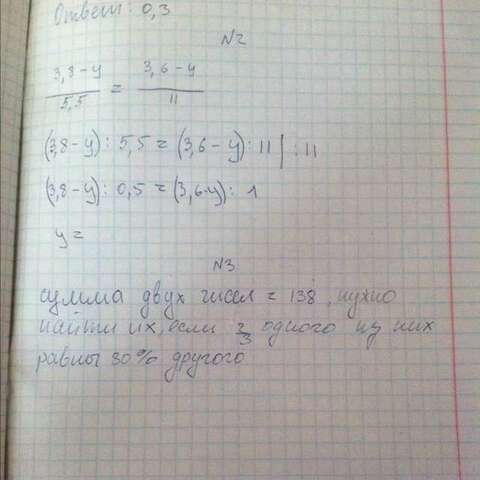 Ответ: 0,3
N2
3,8-y / 5,5 = 3,6-y / 11
(3,8-y) : 5,5 = (3,6-y) : 11 | : 11
(3,8-y) : 0,5 = (3,6-y) : 1
y =
N3
сумма двух чисел = 138, нужно
найти их, если 2/3 одного из них
равны 80% другого